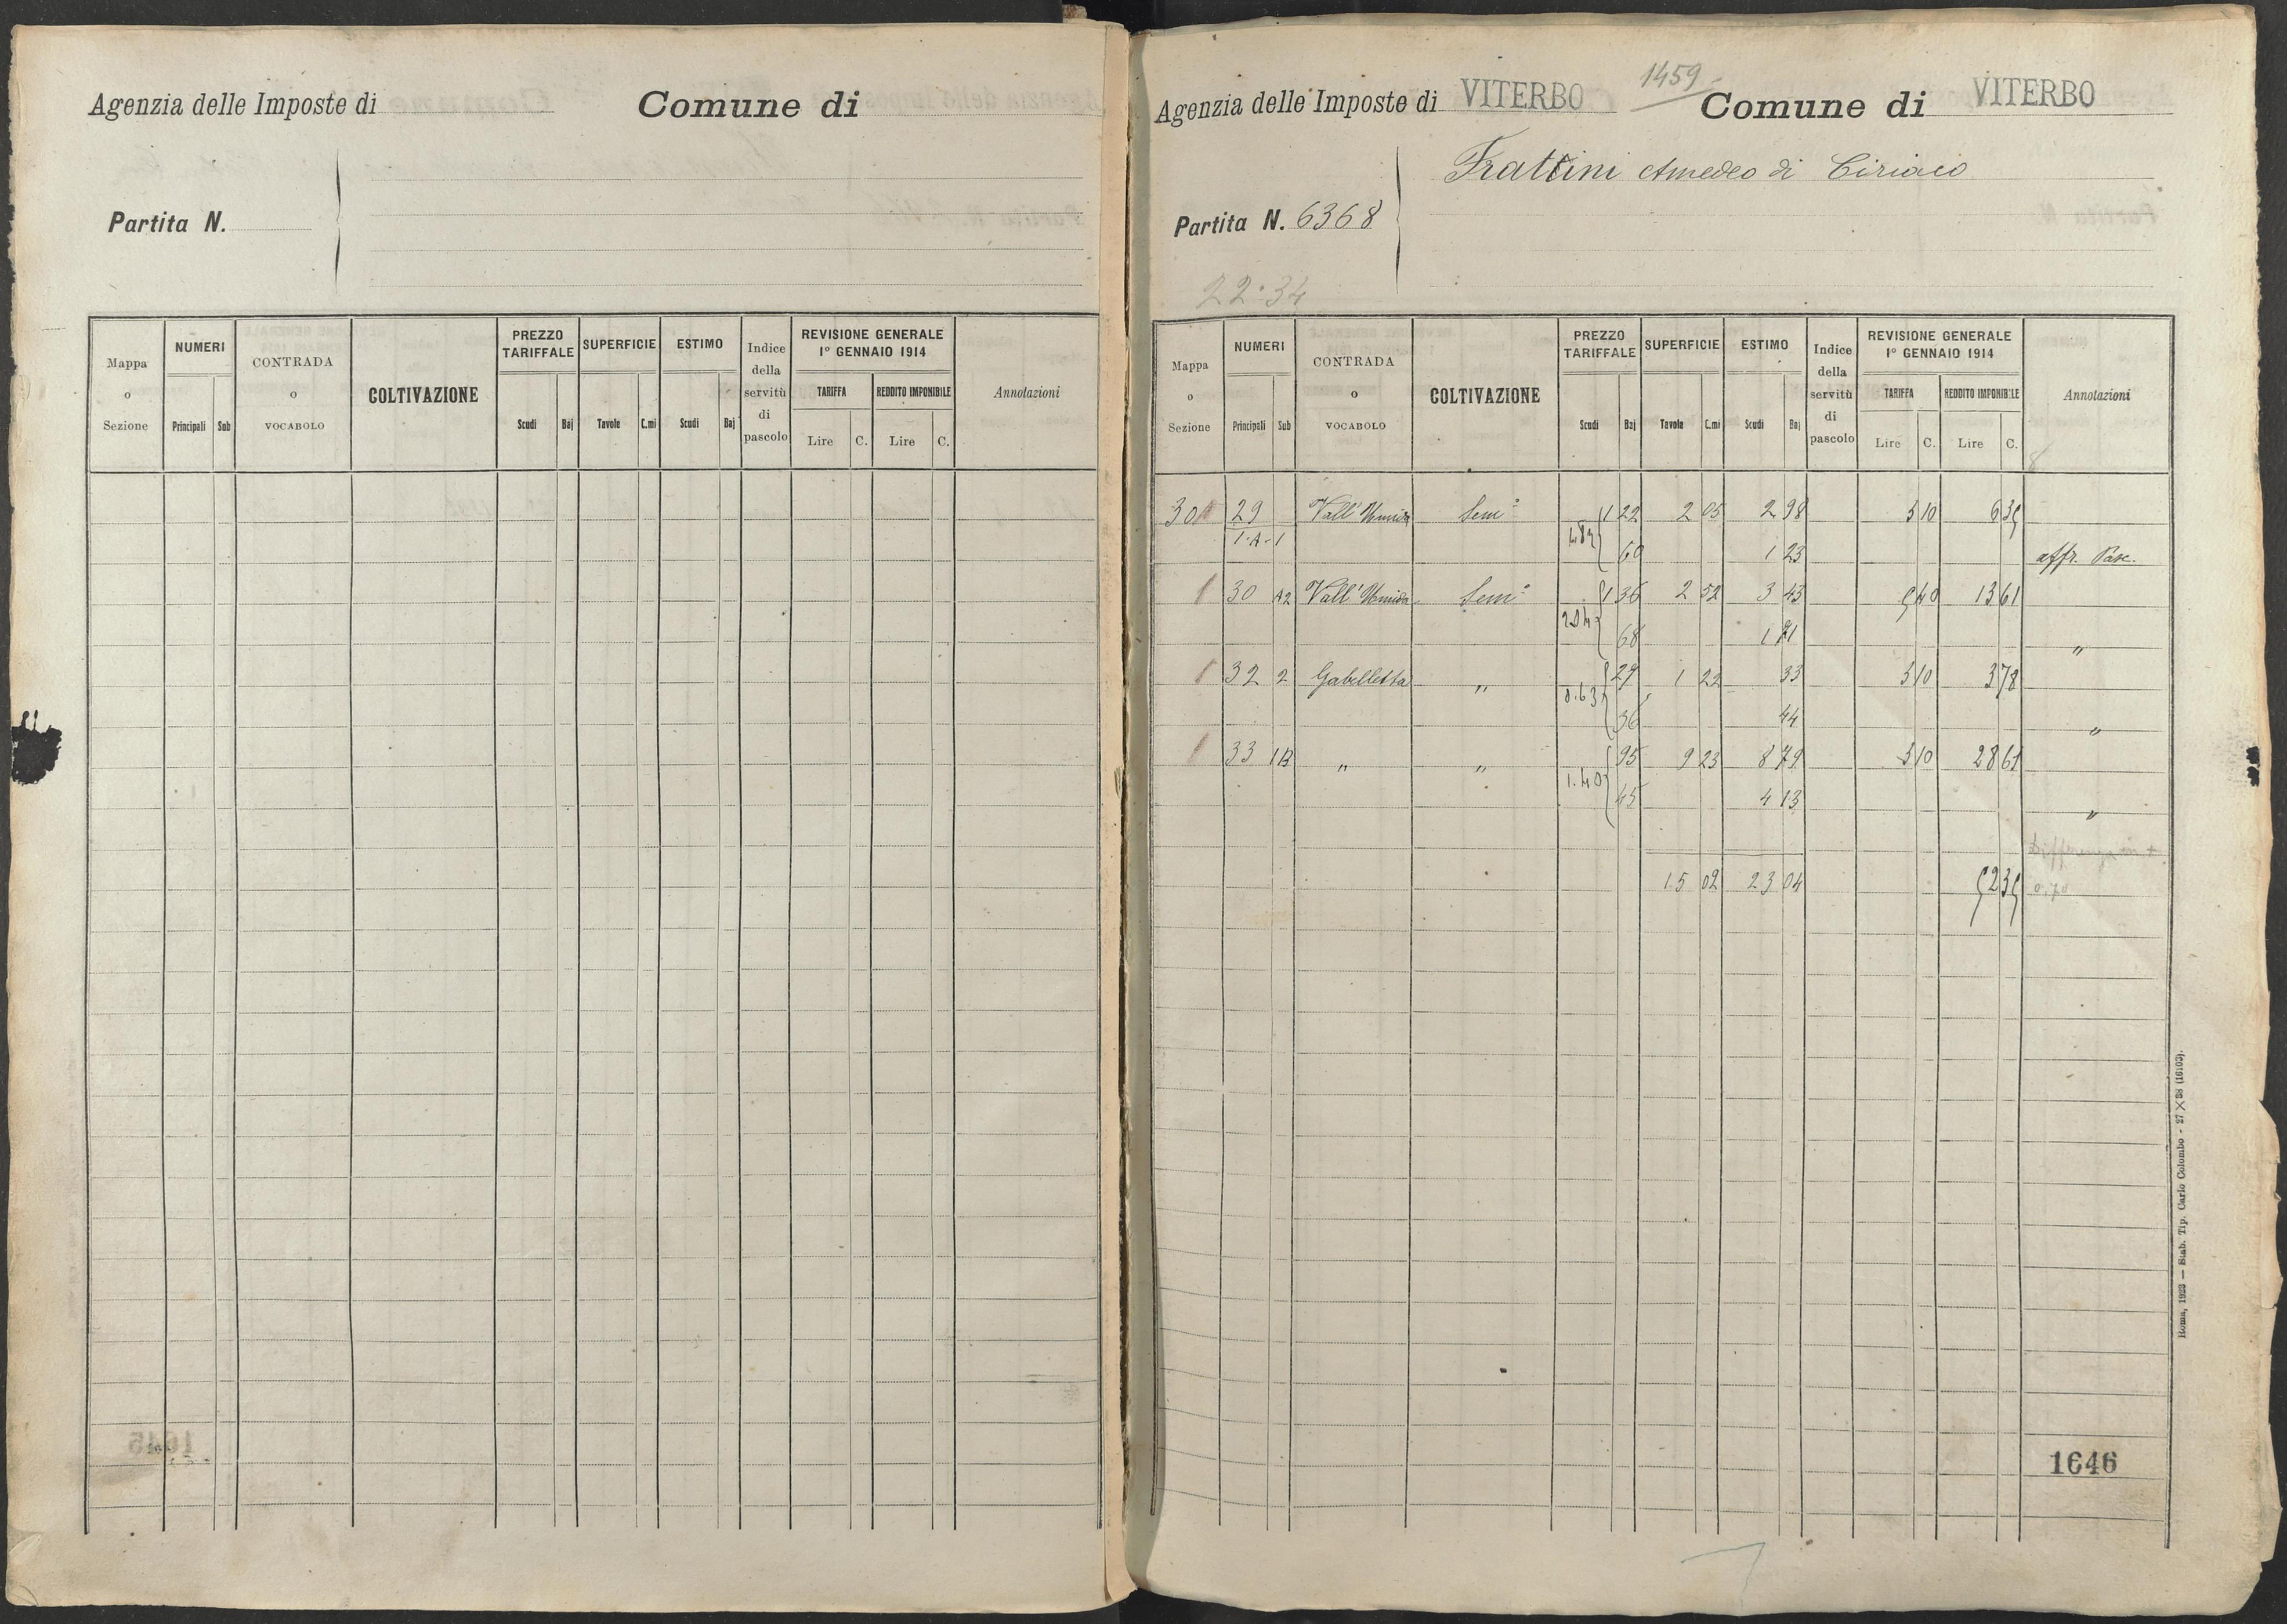 Agenzia delle Imposte di
Comune di
Partita N.
Mappa o Sezione
NUMERI
Principali Sub
CONTRADA o VOCABOLO
COLTIVAZIONE
PREZZO TARIFFALE
Scudi Baj
SUPERFICIE
Tavole C.mi
ESTIMO
Scudi Baj
Indice della servitù di pascolo
REVISIONE GENERALE 1° GENNAIO 1914
TARIFFA
Lire C.
REDDITO IMPONIBILE
Lire C.
Annotazioni
1645
1459
Agenzia delle Imposte di VITERBO Comune di VITERBO
Frattini Amedeo di Ciriaco
Partita N. 6368
22·34
Mappa o Sezione
NUMERI
Principali Sub
CONTRADA o VOCABOLO
COLTIVAZIONE
PREZZO TARIFFALE
Scudi Baj
SUPERFICIE
Tavole C.mi
ESTIMO
Scudi Baj
Indice della servitù di pascolo
REVISIONE GENERALE 1° GENNAIO 1914
TARIFFA
Lire C.
REDDITO IMPONIBILE
Lire C.
Annotazioni
30 1 29 Vall'Umida Sem° 1 22 2 05 2 98 5 10 6 35
1-A-1 1.82 60 1 23 affr. Pasc.
1 30 A2 Vall'Umida Sem° 1 36 2 52 3 43 5 40 13 61
2.04 68 1 71 "
1 32 2 Gabelletta " 27 1 22 33 3 10 3 78
0.63 36 44 "
1 33 1B " " 95 9 23 8 79 3 10 28 61
1.40 45 4 13 "
15 02 23 04 52 35
0,70
1646
Roma, 1923 — Stab. Tip. Carlo Colombo - 27 × 38 (16103).